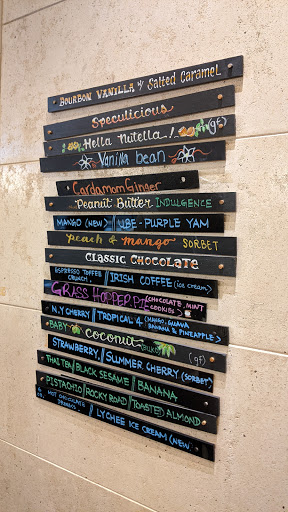 BOURBON VANILLA W/ SALTED CARAMEL
Speculicious
Hella Nutella! (gf)
Vanilla bean
Cardamom Ginger
Peanut Butter INDULGENCE
MANGO (NEW) // UBE - PURPLE YAM
Peach & mango SORBET
CLASSIC CHOCOLATE
ESPRESSO TOFFEE CRUNCH // IRISH COFFEE (ice cream)
GRASS HOPPER PIE (CHOCOLATE, MINT COOKIES)
N.Y CHERRY // TROPICAL 4 (MANGO, GUAVA BANANA & PINEAPPLE)
BABY COCONUT (BUKO) (gf)
STRAWBERRY // SUMMER CHERRY (SORBET)
THAI TEA // BLACK SESAME // BANANA
PISTACHIO // ROCKY ROAD // TOASTED ALMOND
HOT CHOCOLATE // LYCHEE ICE CREAM (NEW)